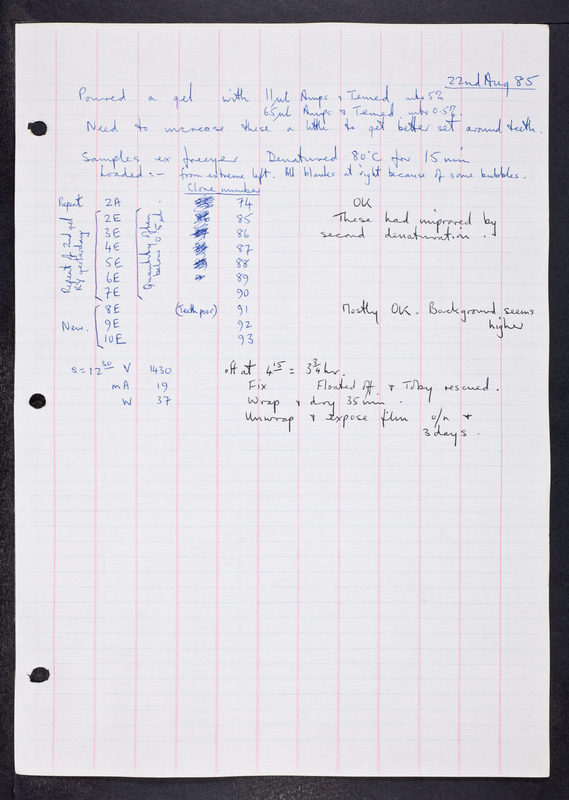 22nd Aug 85
Poured a gel with 11µl Amps & Temed into 52
65µl Amps & Temed into 0.5T.
Need to increase these a little to get better set around teeth.
Samples ex freezer Denatured 80°C for 15 min
Loaded :- from extreme left. All blanks at right because of some bubbles.
Clone number
Repeat 2A 74 OK
Repeat of 2nd gel RY yesterday
Quantity often below 0.5µl.
2E 85 These had improved by
3E 86 second denaturation.
4E 87
5E 88
6E 89
7E 90
New. 8E (Teeth poor) 91 Mostly OK. Background seems
9E 92 higher
10E 93
S = 12³⁰ V 1430 off at 4¹⁵ = 3¾ hr.
mA 19 Fix Floated off & Toby rescued.
W 37 Wrap & dry 35 min.
Unwrap & expose film o/n &
3 days.